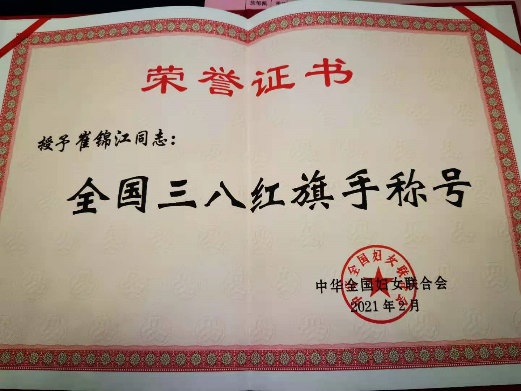 荣誉证书
授予崔锦江同志：
全国三八红旗手称号
中华全国妇女联合会
2021年2月